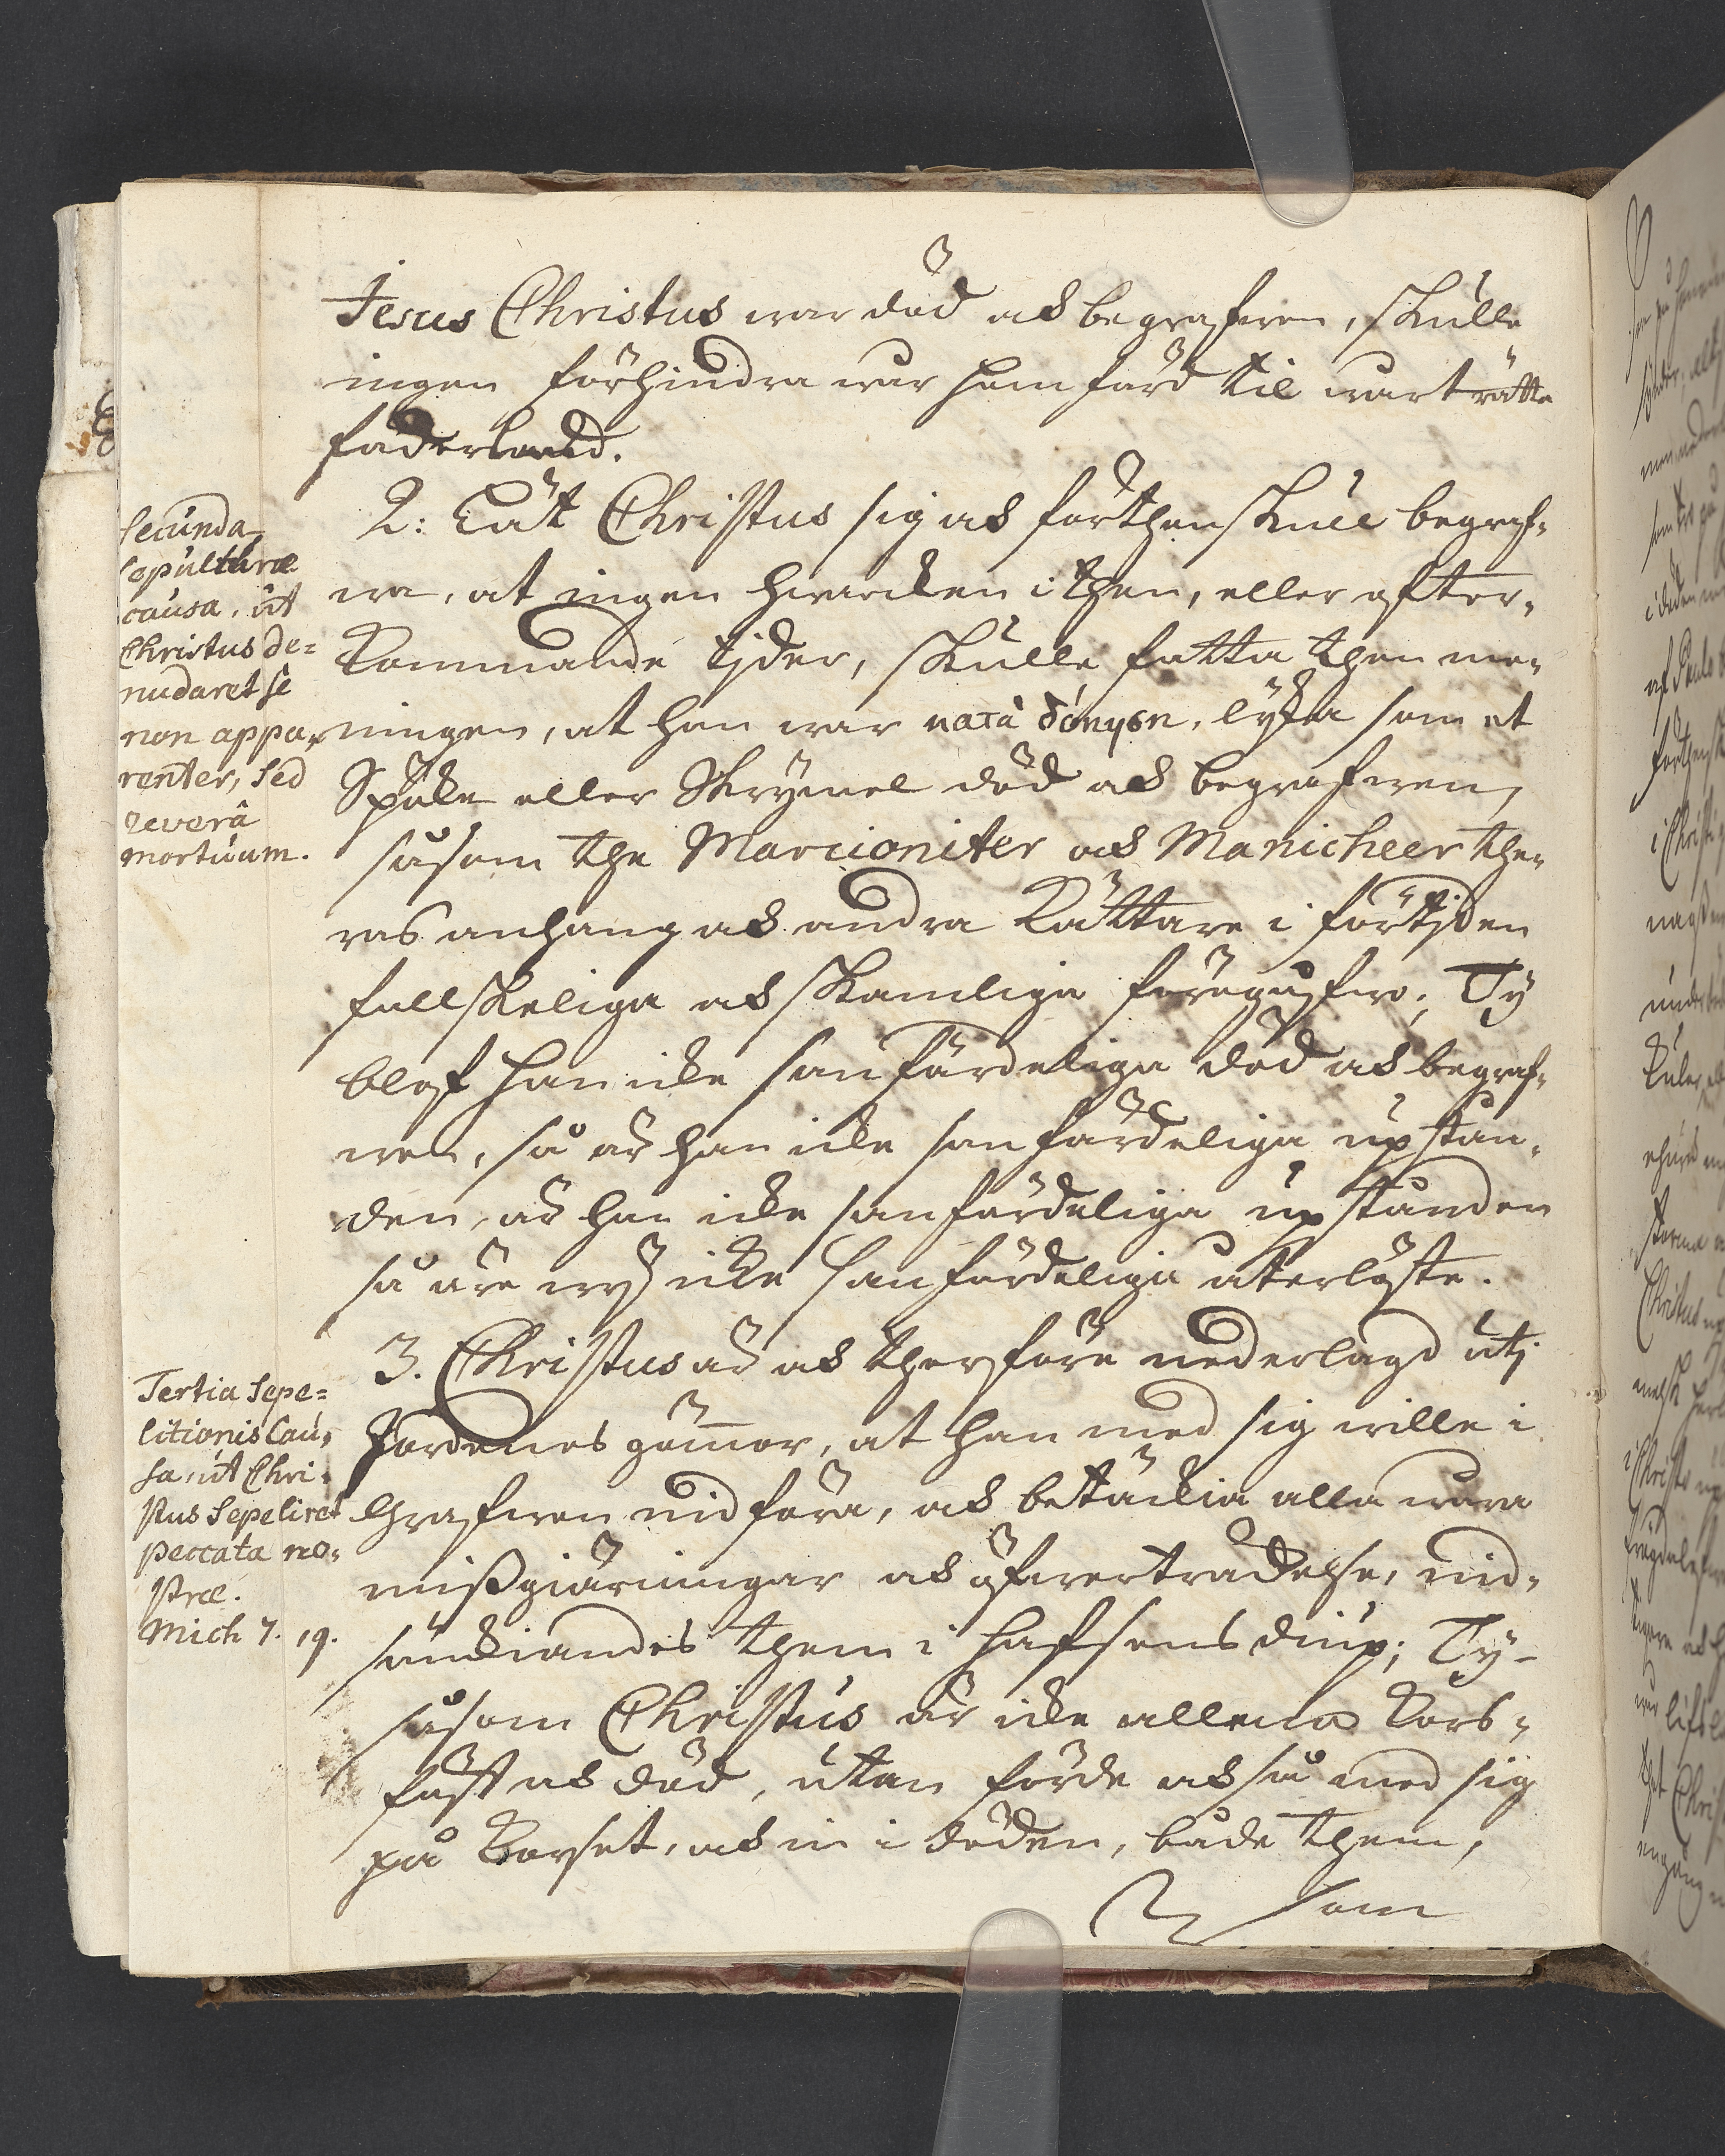 Jesus Christus war död och begrafwen, skulle
ingen förhindra wår hemfärd til wårt rätta
fädernesland.
2: Lät Christus sig och förthenskull begraf-
wa, at ingen hwarcken i then, eller efter-
kommande tijder, skulle fatta then me-
ningen, at han war κατὰ δόκησιν, lijka som et
Spöke eller Skrymel död och begrafwen,
såsom the Marcioniter och Manicheer the-
ras anhang och andra Kättare i förtijden
falskeliga och skamliga föregåfwo; Ty
blef han icke sanfärdeliga död och begraf-
wen, så är han icke sanfärdeliga upstån-
den, är han icke sanfärdeliga upstånden
så äre wij icke sanfärdeliga återlöste.
3. Christus är och therföre nederlagd utj
Jordenes gömor, at han med sig wille i
Grafwen nidföra, och betäckia alla wåra
mißgiärningar och öfwerträdelse, nid-
sänckiandes them i hafsens diup; Ty
såsom Christus är icke allena Kors-
fäst och död, utan förde också med sig
på Korset, och in i döden, både them,
som
Secunda
sepulturæ
causa, ut
Christus de-
nudaret se
non appa-
renter, sed
reverâ
mortuum.
Tertia Sepe-
litionis Cau-
sa, ut Chri-
stus Sepeliret
peccata no-
stra.
Mich 7. 19.